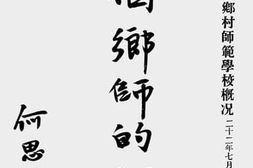 鄉村師範學校概况
二十二年七月
鄉師的
何思